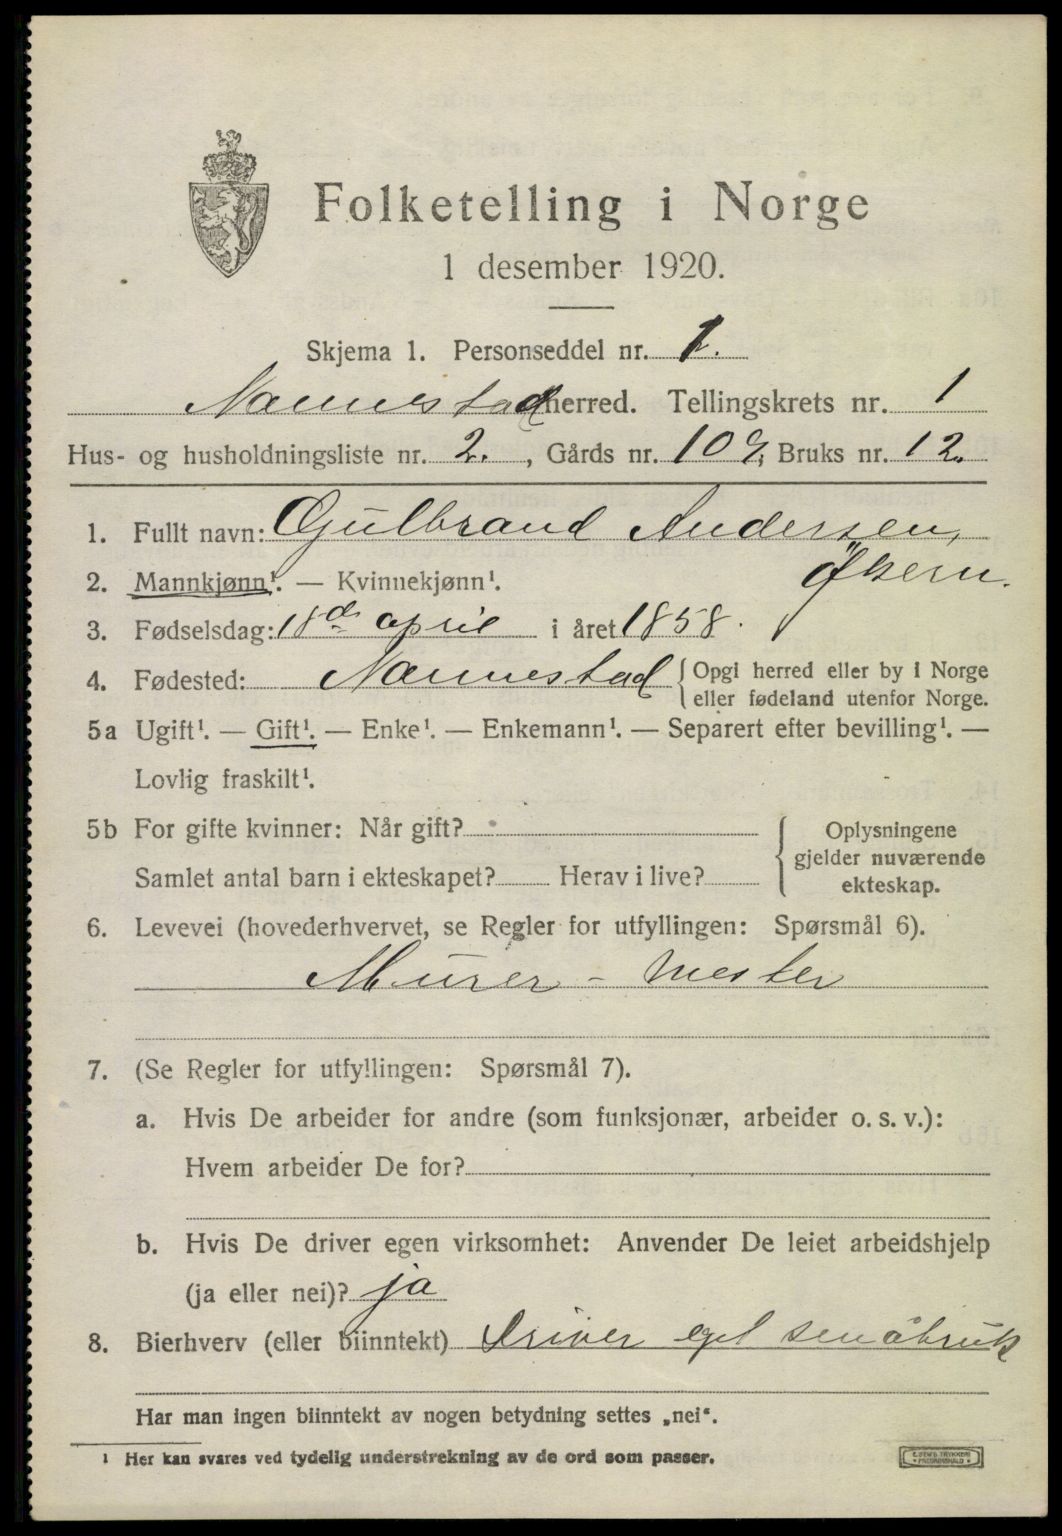 Folketelling i Norge
1 desember 1920.
Skjema 1. Personseddel nr. 1.
Nannestad herred. Tellingskrets nr. 1
Hus- og husholdningsliste nr. 2. , Gårds nr. 109, Bruks nr. 12.
1. Fullt navn: Gulbrand Andersen,
Økern.
2. Mannkjønn¹. — Kvinnekjønn¹.
3. Fødselsdag: 18de april i året 1858.
4. Fødested: Nannestad { Opgi herred eller by i Norge
eller fødeland utenfor Norge.
5a Ugift¹. — Gift¹. — Enke¹. — Enkemann¹. — Separert efter bevilling¹. —
Lovlig fraskilt¹.
5b For gifte kvinner: Når gift?
Samlet antal barn i ekteskapet? Herav i live?
Oplysningene
gjelder nuværende
ekteskap.
6. Levevei (hovederhvervet, se Regler for utfyllingen: Spørsmål 6).
Murer - mester
7. (Se Regler for utfyllingen: Spørsmål 7).
a. Hvis De arbeider for andre (som funksjonær, arbeider o. s. v.):
Hvem arbeider De for?
b. Hvis De driver egen virksomhet: Anvender De leiet arbeidshjelp
(ja eller nei)? ja
8. Bierhverv (eller biinntekt) Driver eget småbruk
Har man ingen biinntekt av nogen betydning settes „nei“.
¹ Her kan svares ved tydelig understrekning av de ord som passer.